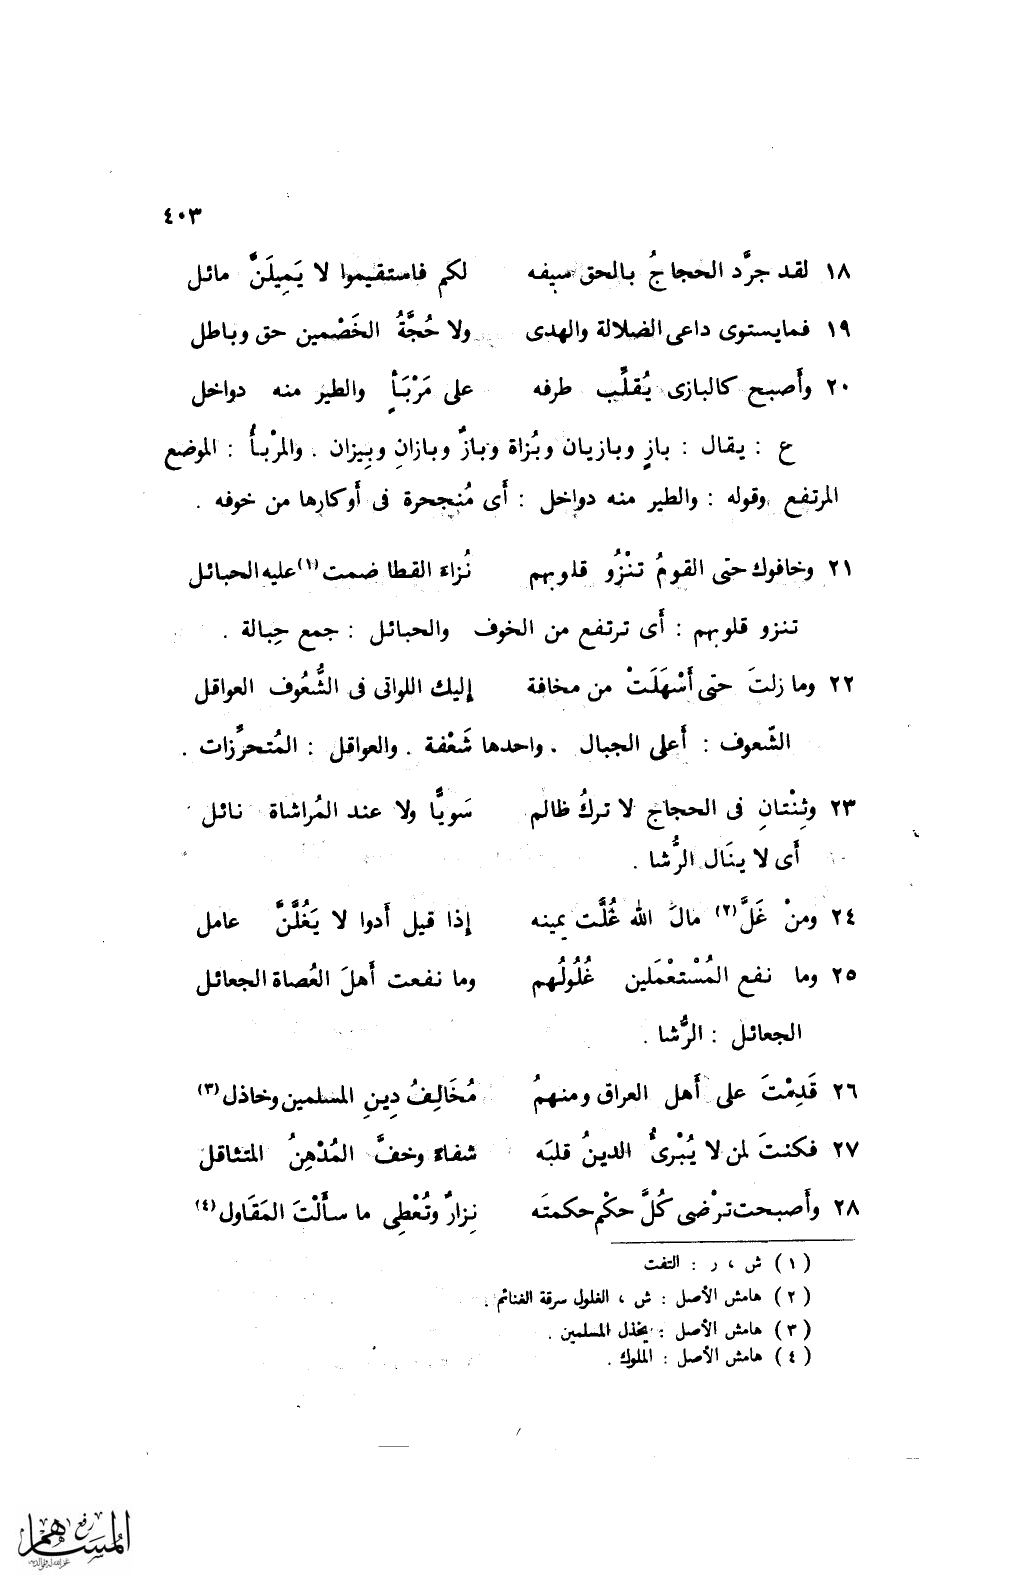 ٤٠٣
١٨ لقد جرَّد الحجاجُ بالحق سيفه لكم فاستقيموا لا يَمِيلَنَّ مائل
١٩ فما يستوى داعى الضلالة والهدى ولا حُجَّةُ الخَصْمين حق وباطل
٢٠ وأصبح كالبازى يُقلِّب طرفه على مَرْبَأٍ والطير منه دواخل
ع : يقال : بازٍ وبازيان وبُزاة وبازٌ وبازانِ وبِيزان . والمرْبأُ : الموضع
المرتفع وقوله : والطير منه دواخل : أى مُنجحرة فى أوكارها من خوفه .
٢١ وخافوك حتى القومُ تنْزُو قلوبهم نُزاءَ القطا ضمت(١) عليه الحبائل
تنزو قلوبهم : أى ترتفع من الخوف والحبائل : جمع حِبالة .
٢٢ وما زلتَ حتى أسْهَلَتْ من مخافة إليك اللواتى فى الشُّعُوف العواقل
الشّعوف : أعلى الجبال . واحدها شَعْفة . والعواقل : المُتحرِّزات .
٢٣ وثِنْتانِ فى الحجاج لا تركُ ظالم سَويًّا ولا عند المُراشاة نائل
أى لا ينَال الرُّشا .
٢٤ ومنْ غَلَّ(٢) مالَ الله غُلَّت يمينه إذا قيل أدوا لا يَغُلَّنَّ عامل
٢٥ وما نفع المُسْتعْمَلين غُلُولُهم وما نفعت أهلَ العُصاة الجعائل
الجعائل : الرُّشا .
٢٦ قَدِمْتَ على أهل العراق ومنهمُ مُخَالِفُ دِينِ المسلمين وخاذل(٣)
٢٧ فكنتَ لمن لا يُبْرئُ الدينُ قلبَه شفاءً وخفَّ المُدْهِنُ المتثاقل
٢٨ وأصبحت ترْضى كُلَّ حكْم حكمتَه نِزارٌ وتُعْطِى ما سألْتَ المَقَاول(٤)
(١) ش ، ر : التفت
(٢) هامش الأصل : ش ، الغلول سرقة الغنائم .
(٣) هامش الأصل : يخذل المسلمين .
(٤) هامش الأصل : الملوك .